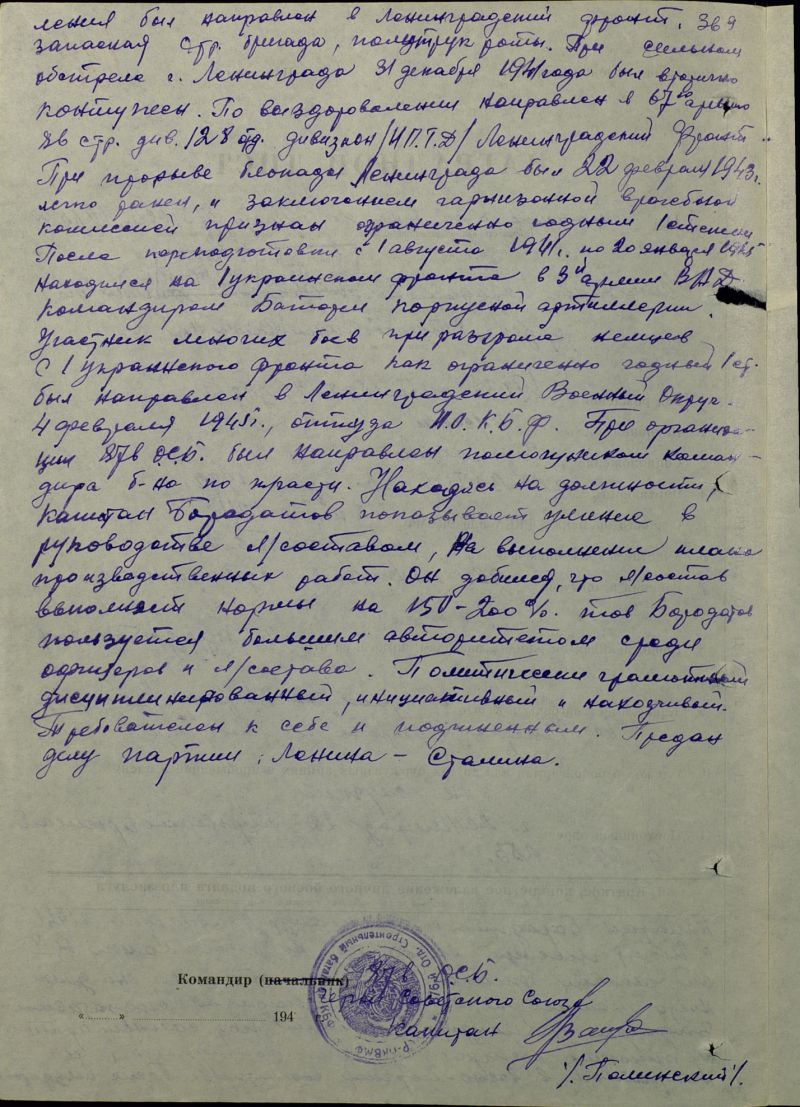 ления был направлен в Ленинградский фронт. 369
запасная стр. бригада, политрук роты. При сильном
обстреле г. Ленинграда 31 декабря 1941 года был вторично
контужен. По выздоровлении направлен в 67ю армию
стр. див. 128 отд. дивизион /И.П.Т.Д/ Ленинградский Фронт.
При прорыве блокады Ленинграда был 22 февраля 1943 г.
легко ранен, и заключением гарнизонной врачебной
комиссией признан ограниченно годным 1 степени
После переподготовки с 1 августа 194 г. по 20 января 1945
находился на 1 украинском фронте в 3й армии
командиром Батареи корпусной артиллерии.
Участник многих боев при разгроме немцев
С 1 Украинского фронта как ограниченно годный 1 ст.
был направлен в Ленинградский Военный Округ.
4 февраля 1945 г., оттуда К.Б.Ф. При организа-
ции О.С.Б. был направлен помощником коман-
дира б-на по части. Находясь на должности,
капитан Бородатов показывает умение в
руководстве л/составом, на выполнении плана
производственных работ. Он добился, что л/состав
выполняет нормы на 150-200%. тов Бородатов
пользуется большим авторитетом среди
офицеров и л/состава. Политически грамотный
дисциплинированный, инициативный и находчивый.
Требователен к себе и подчиненным. Предан
делу партии: Ленина – Сталина.
Командир (начальник) О.С.Б.
Герой Советского Союза
«......» 194
капитан
/. Полинский/.
Отд. Строительный батал